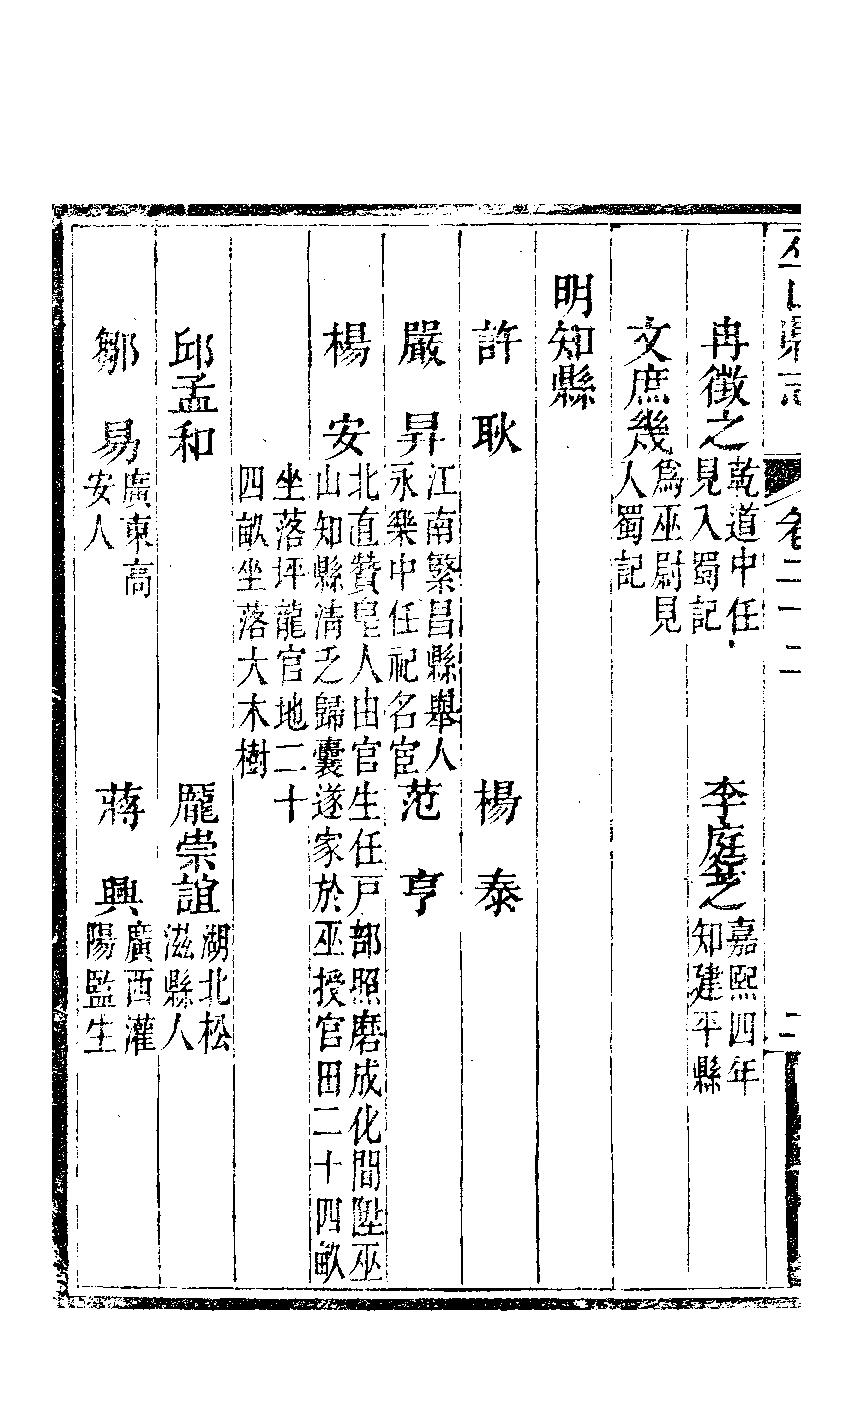 巫山縣志 卷二十二 二
冉徵之 乾道中任見入蜀記 李庭芝 嘉熙四年知建平縣
文庶幾 爲巫尉見入蜀記
明知縣
許耿 楊泰
嚴昇 江南繁昌縣舉人永樂中任祀名宦 范亨
楊安 北直贊皇人由官生任戸部照磨成化間陞巫山知縣淸乏歸囊遂家於巫授官田二十四畝
坐落坪龍官地二十四畝坐落大木樹
邱孟和 龎崇誼 湖北松滋縣人
鄒易 廣東高安人 蔣興 廣西灌陽監生